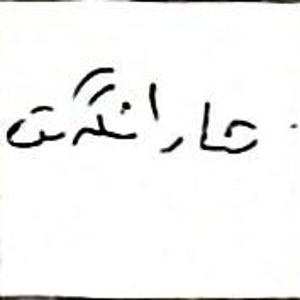 شمار انگشت